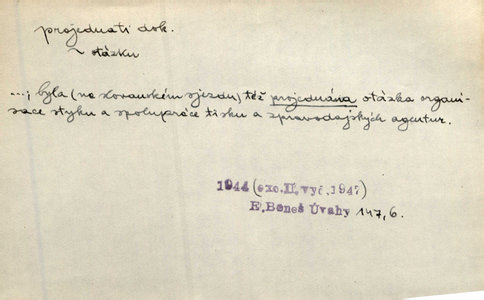 projednati dok.
~ otázku
...; byla (na slovanském sjezdu) též projednána otázka organi-
sace styku a spolupráce tisku a zpravodajských agentur.
1944 (exc. II. vyč. 1947)
E. Beneš Úvahy 147, 6.